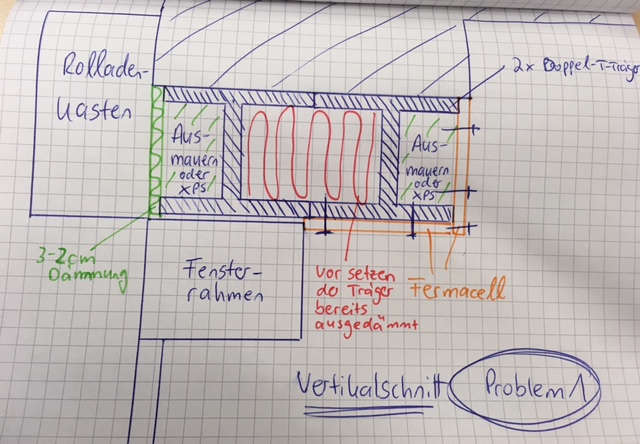 Rolladen-
kasten
2x Doppel-T-Träger
Aus-
mauern
oder
XPS
Aus-
mauern
oder
XPS
3-2cm
Dämmung
Fenster-
rahmen
Vor setzen
der Träger
bereits
ausgedämmt
Fermacell
Vertikalschnitt
Problem 1